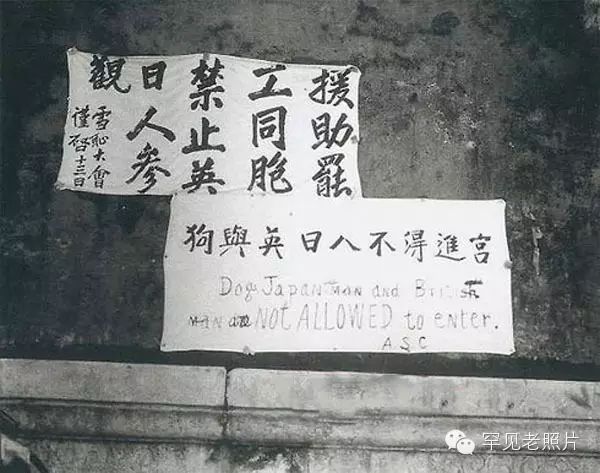 援助罷
工同胞
禁止英
日人參
觀
雪恥大會
謹啓十三日
狗與英日人不得進宮
Dogs JAPAN MAN and British
MAN NOT ALLOWED to enter.
A S C
罕见老照片